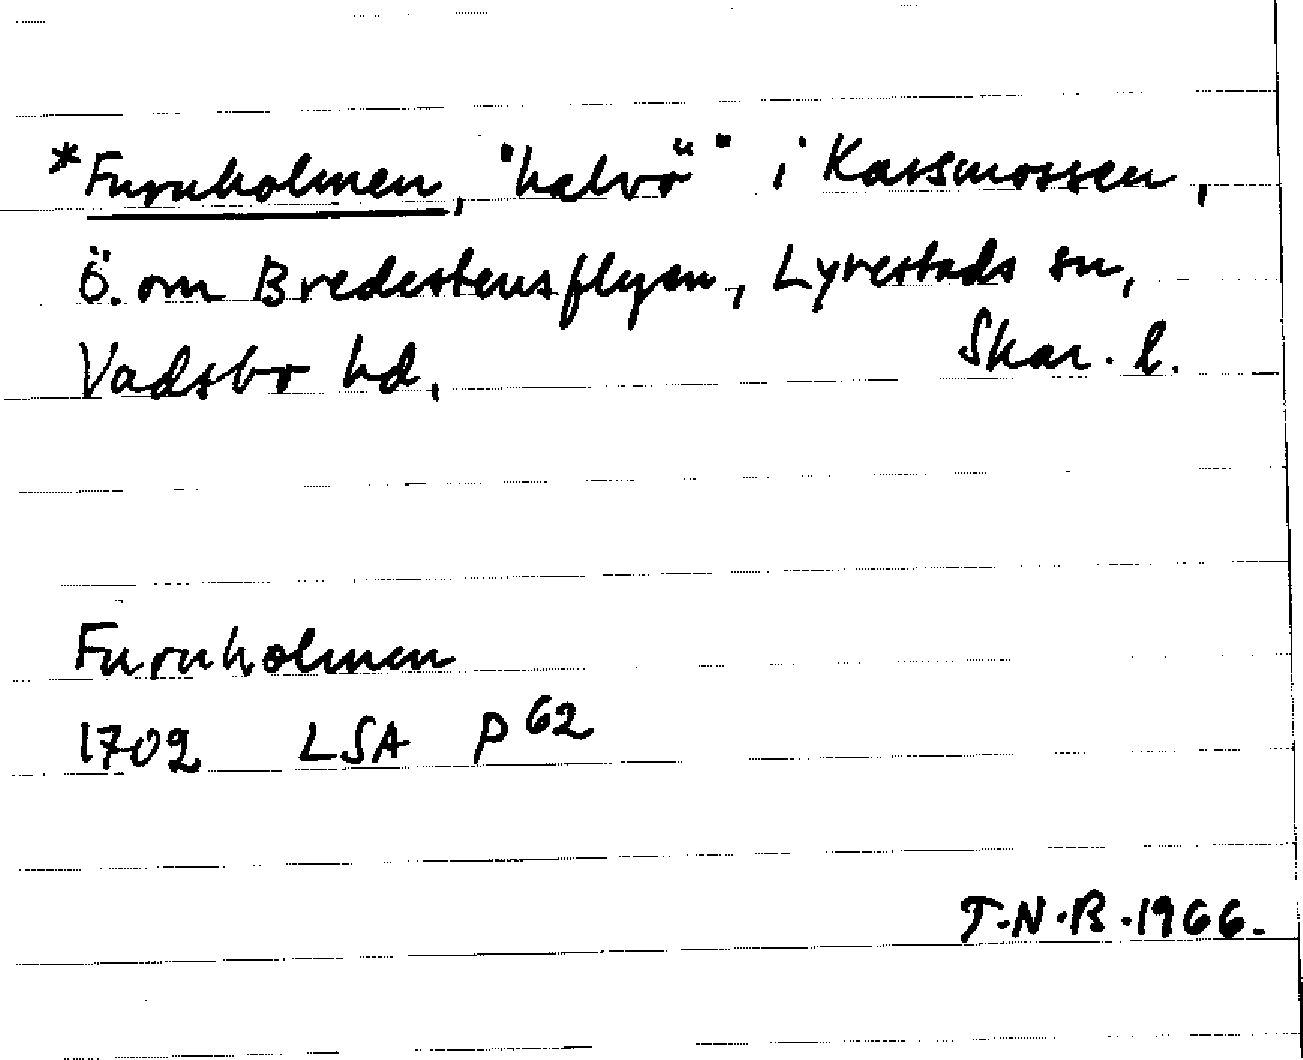 *Furuholmen, "halvö" i Karsmossen,
Ö. om Bredestensflyen, Lyrestads sn,
Vadsbo hd, Skar. l.
Furuholmen
1702 LSA P 62
T.N.B. 1966.